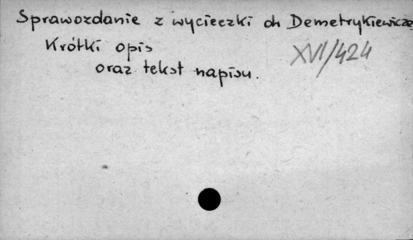 Sprawozdanie z wycieczki dh Demetrykiewicza
Krótki opis
XVI/424
oraz tekst napisu.